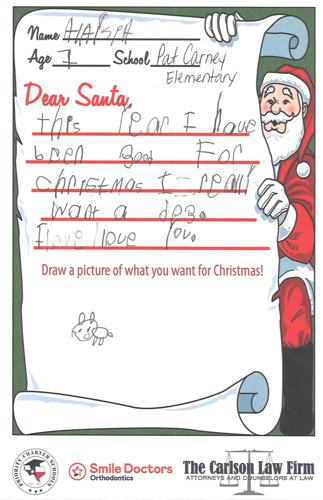 Name
Age 7 School Pat Carney
Elementary
Dear Santa,
this year I have
been good For
christmas I realy
want a dog.
I love love You.
Draw a picture of what you want for Christmas!
PRIORITY CHARTER SCHOOLS
Smile Doctors
Orthodontics
The Carlson Law Firm
ATTORNEYS AND COUNSELORS AT LAW